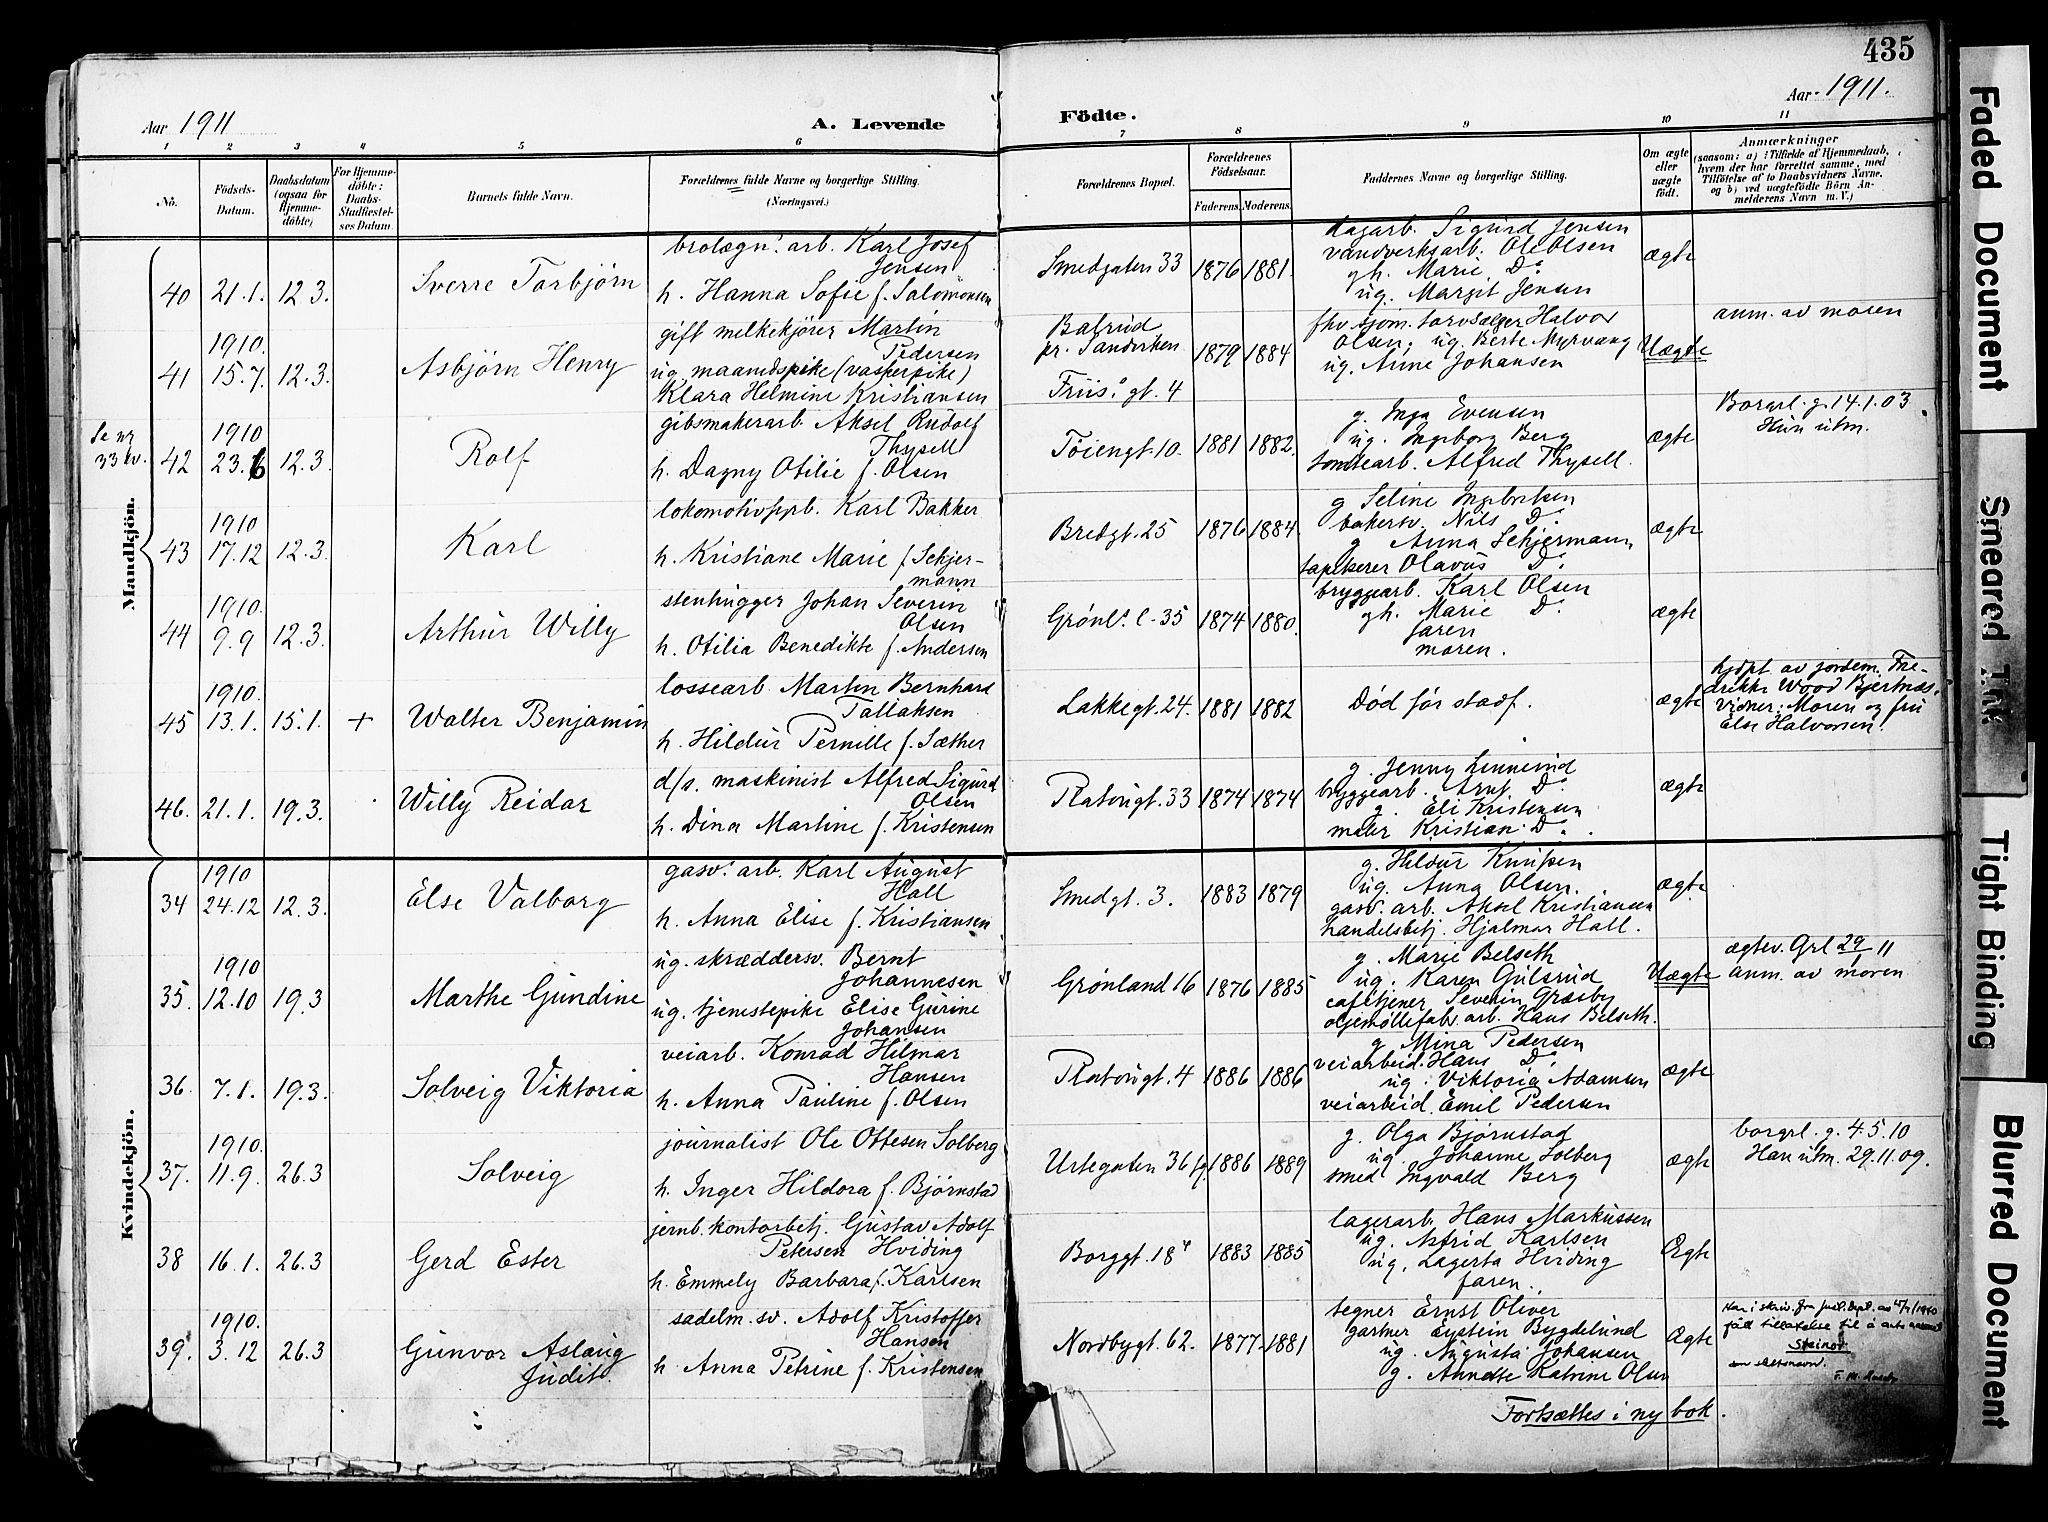 435
Aar 1911
A. Levende
Födte.
Aar 1911.
1 2 3 4 5 6 7 8 9 10 11
No.
Födsels-Datum.
Daabsdatum (ogsaa for Hjemmedöbte)
For Hjemmedöbte: Daabs-Stadfæstelses Datum.
Barnets fulde Navn.
Forældrenes fulde Navne og borgerlige Stilling.
(Næringsvei.)
Forældrenes Bopæl.
Forældrenes Födselsaar.
Faderens. Moderens.
Faddernes Navne og borgerlige Stilling.
Om ægte eller uægte födt.
Anmærkninger
(saasom: a) i Tilfælde af Hjemmedaab,
hvem der har forrettet samme, med
Tilföielse af to Daabsvidners Navne,
og b) ved uægtefödte Börn Anmelderens Navn m. V.)
Mandkjön.
40 21.1. 12.3. Sverre Torbjørn
brolægn. arb. Karl Josef
Jensen
h. Hanna Sofie f. Salomonsen
Smedgaten 33 1876 1881.
dagarb. Sigurd Jensen
vandverksarb. Ole Olsen
gh. Marie Do
ug. Margit Jensen
ægte
41 1910. 15.7. 12.3. Asbjørn Henry
gift melkekjører Martin
Pedersen
ug. maanedspike (vaskerpike)
Klara Helmine Kristiansen
Friis' gt. 4
1879 1884
fhv. sjøm. torvsælger Halvor
Olsen, ug. Berte Myrvang
ug. Anne Johansen
Uægte
anm. av moren
Se nr 33 kv.
42 1910 23.6 12.3. Rolf
gibsmakerarb. Aksel Rudolf
Thysell
h. Dagny Otilie f. Olsen
Tøiengt. 10. 1881 1882.
g. Inga Evensen
ug. Ingeborg Berg
tomtearb. Alfred Thysell.
ægte
Borgrl. g. 14.1.03.
Hun utm.
43 1910 17.12 12.3. Karl
lokomotivfyrb. Karl Bakker
h. Kristiane Marie f. Schjer-
mann
Bredgt. 25 1876 1884.
g. Seline Ingebretsen
bakersv. Nils Do
g Anna Schjermann
tapetserer Olavus Do
ægte
44 1910. 9.9 12.3. Arthur Willy
stenhugger Johan Severin
Olsen
h. Otilia Benedikte f. Andersen
Grønl. l. 35 1874 1880.
bryggearb. Karl Olsen
gh. Marie Do
faren
moren.
ægte
45 1910. 13.1. 15.1. + Walter Benjamin
lossearb. Martin Bernhard
Tallaksen
h. Hildur Pernille f. Sæther
Lakkegt. 24. 1881 1882
Død før stadf.
ægte
hjdpt av jordem. Fre-
drikke Wood Bjertnæs.
Vidner: Moren og fru
Else Halvorsen.
46. 21.1. 19.3. Willy Reidar
d/s. maskinist Alfred Sigurd
Olsen
h. Dina Martine f. Kristensen
Platougt. 33 1874 1874
g. Jenny Linnerud
bryggearb. Arnt Do
g. Eli Kristensen
maler Kristian Do
ægte
Kvindekjön.
34 1910 24.12 12.3. Else Valborg
gasv. arb. Karl August
Hall
h. Anna Elise f. Kristiansen
Smedgt. 3. 1883 1879
g. Hildur Knutsen
ug. Anna Olsen.
gasv. arb. Aksel Kristiansen
handelsbetj. Hjalmar Hall.
ægte
35. 1910 12.10 19.3 Marthe Gundine
ug. skræddersv. Bernt
Johannesen
ug. tjenestepike Elise Gurine
Johansen
Grønland 16 1876 1885
g. Marie Belseth
ug. Karen Gulsrud
cafétjener Severin Græsby
oljemøllefabr. arb. Hans Belseth.
Uægte
ægtev. Grl 29/11
anm. av moren
36. 7.1. 19.3. Solveig Viktoria
veiarb. Konrad Hilmar
Hansen
h. Anna Pauline f. Olsen
Platougt. 4 1886 1886
g Mina Pedersen
veiarbeid. Hans Do
ug. Viktoria Adamsen
veiarbeid. Emil Pedersen
ægte
37. 1910. 11.9. 26.3 Solveig
journalist Ole Ottesen Solberg
h. Inger Hildora f. Bjørnstad
Urtegaten 36 1886 1889
g. Olga Bjørnstad
ug. Johanne Solberg
smed Ingvald Berg
ægte
borgrl. g. 4.5.10
Han utm. 29.11.09.
38 16.1. 26.3 Gerd Ester
jernb. kontorbetj. Gustav Adolf
Petersen Hviding
h. Emmely Barbara f. Karlsen
Borggt. 18 1883 1885
lagerarb. Hans Markussen
ug. Astrid Karlsen
ug. Lagerta Hviding
faren.
Ægte
39. 1910. 3.12 26.3 Gunvor Aslaug
Judit.
sadelm. sv. Adolf Kristoffer
Hansen
h. Anna Petrine f. Kristensen
Nordbygt. 62. 1877 1881
tegner Ernst Oliver
gartner Eystein Bygdelund
ug. Augusta Johansen
g. Anndte Katrine Olsen
Ægte
Har i skriv. fra just. dept. av
fått tillatelse til å anta navnet
Steinor
som slektsnavn.
Fortsættes i ny bok.
Faded Document
Smeared Ink
Tight Binding
Blurred Document